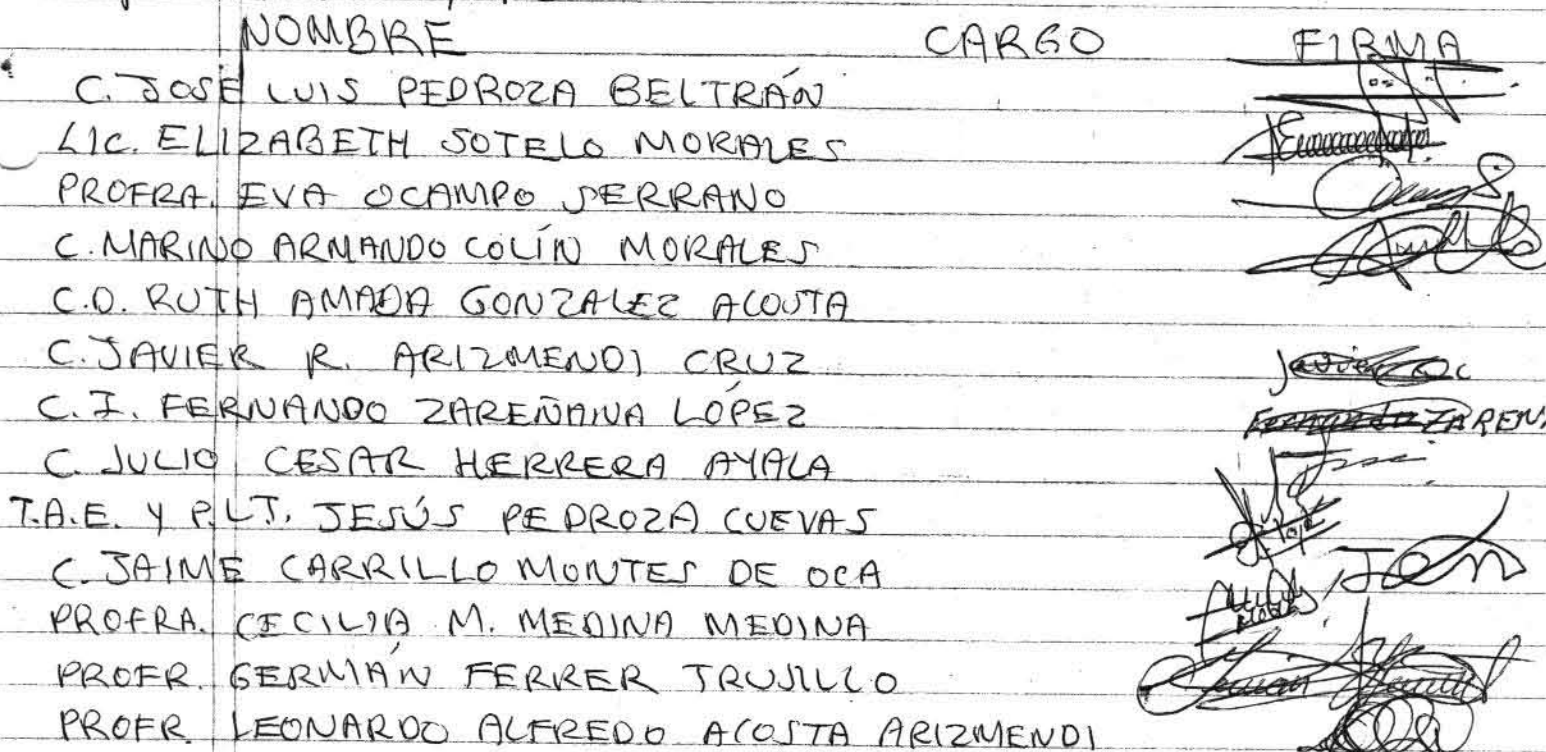 NOMBRE CARGO FIRMA
C. JOSE LUIS PEDROZA BELTRÁN
LIC. ELIZABETH SOTELO MORALES
PROFRA. EVA OCAMPO SERRANO
C. MARINO ARMANDO COLÍN MORALES
C.D. RUTH AMADA GONZALEZ ACOSTA
C. JAVIER R. ARIZMENDI CRUZ
C.I. FERNANDO ZAREÑANA LÓPEZ ZAREN
C. JULIO CESAR HERRERA AYALA
T.A.E. Y P.L.T. JESÚS PEDROZA CUEVAS
C. JAIME CARRILLO MONTES DE OCA
PROFRA. CECILIA M. MEDINA MEDINA
PROFR. GERMÁN FERRER TRUJILLO
PROFR. LEONARDO ALFREDO ACOSTA ARIZMENDI